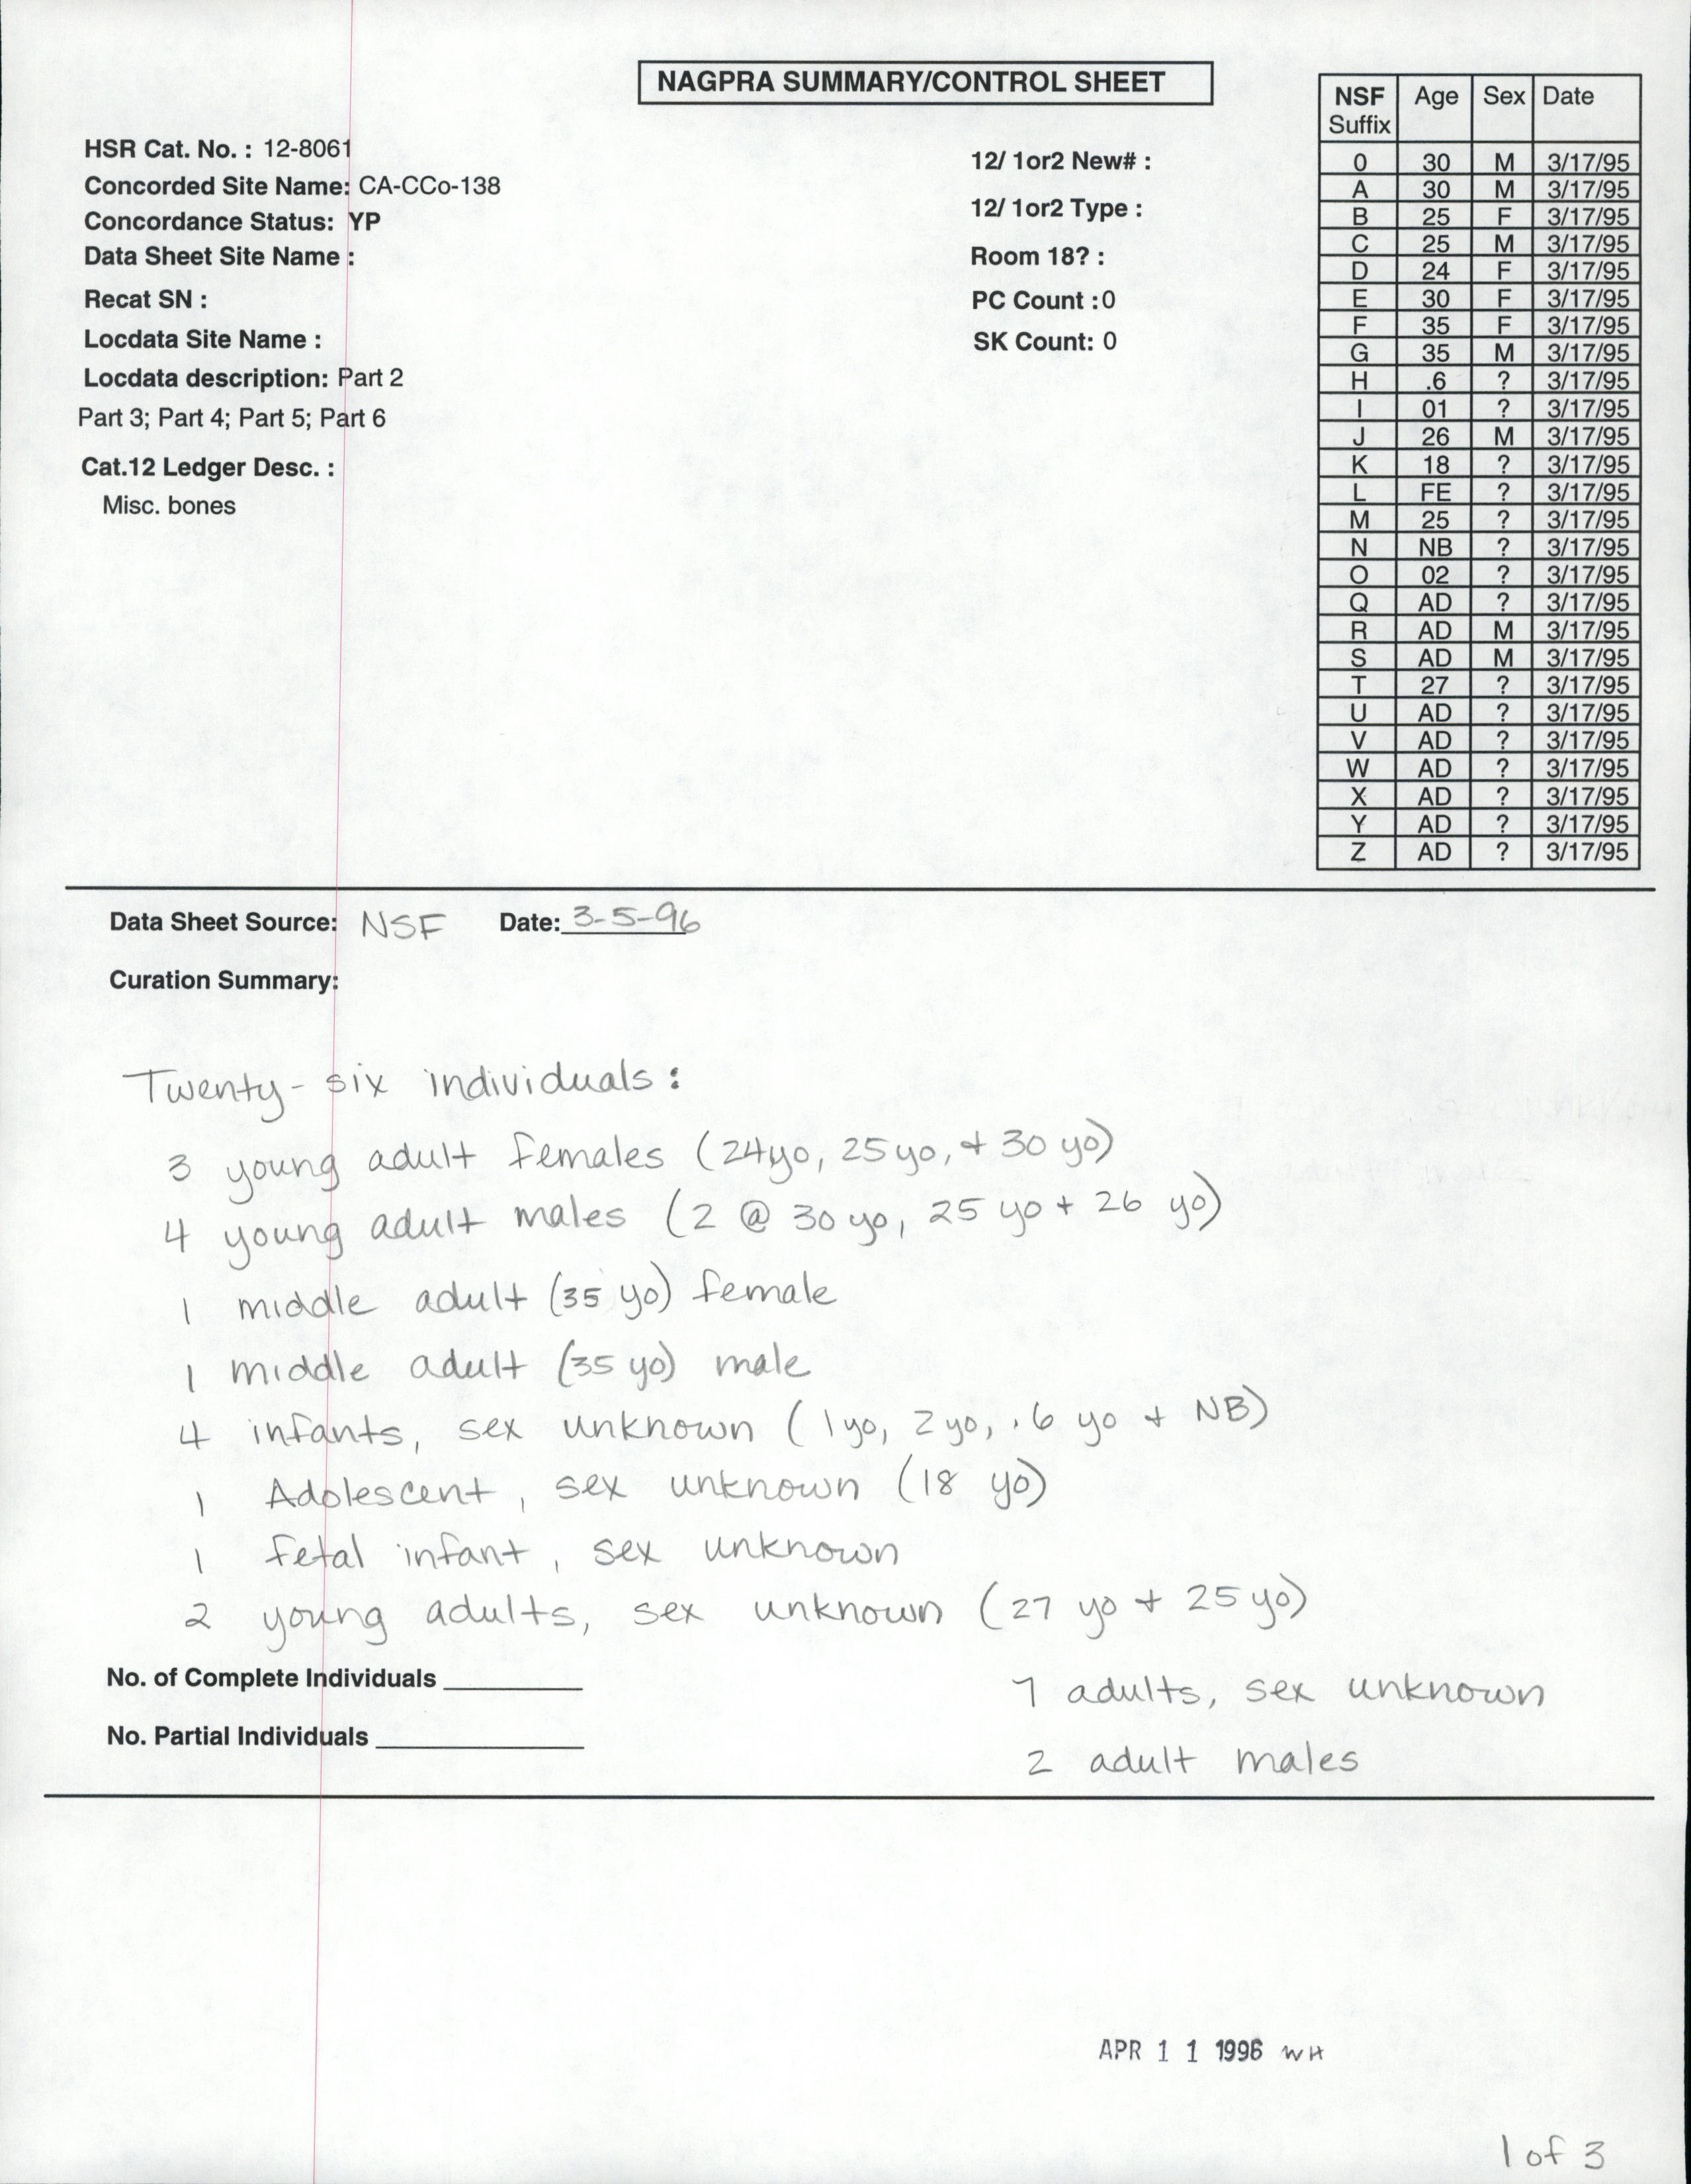 NAGPRA SUMMARY/CONTROL SHEET
HSR Cat. No. : 12-8061
Concorded Site Name: CA-CCo-138
Concordance Status: YP
Data Sheet Site Name :
Recat SN :
Locdata Site Name :
Locdata description: Part 2
Part 3; Part 4; Part 5; Part 6
Cat.12 Ledger Desc. :
Misc. bones
12/ 1or2 New# :
12/ 1or2 Type :
Room 18? :
PC Count :0
SK Count: 0
NSF Suffix Age Sex Date
0 30 M 3/17/95
A 30 M 3/17/95
B 25 F 3/17/95
C 25 M 3/17/95
D 24 F 3/17/95
E 30 F 3/17/95
F 35 F 3/17/95
G 35 M 3/17/95
H .6 ? 3/17/95
I 01 ? 3/17/95
J 26 M 3/17/95
K 18 ? 3/17/95
L FE ? 3/17/95
M 25 ? 3/17/95
N NB ? 3/17/95
O 02 ? 3/17/95
Q AD ? 3/17/95
R AD M 3/17/95
S AD M 3/17/95
T 27 ? 3/17/95
U AD ? 3/17/95
V AD ? 3/17/95
W AD ? 3/17/95
X AD ? 3/17/95
Y AD ? 3/17/95
Z AD ? 3/17/95
Data Sheet Source: NSF Date: 3-5-96
Curation Summary:
Twenty-six individuals:
3 young adult females (24yo, 25yo, + 30 yo)
4 young adult males (2 @ 30 yo, 25 yo + 26 yo)
1 middle adult (35 yo) female
1 middle adult (35 yo) male
4 infants, sex unknown (1yo, 2yo, .6 yo + NB)
1 Adolescent, sex unknown (18 yo)
1 fetal infant, sex unknown
2 young adults, sex unknown (27 yo + 25 yo)
No. of Complete Individuals
7 adults, sex unknown
No. Partial Individuals
2 adult males
APR 11 1996 WH
1 of 3